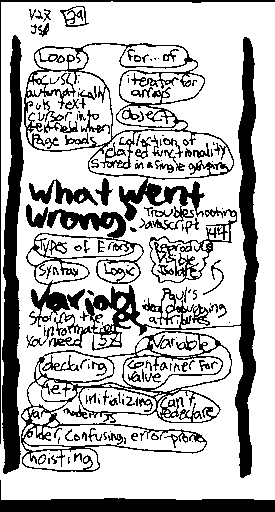 V2X 39
JS1
Loops
for...of
focus():
automatically
puts text
cursor into
text field when
Page loads
iterator for
arrays
Object
Collection of
related functionality
Stored in a single grouping
What went
wrong?
Troubleshooting
Javascript 44
Types of Errors
Syntax
Logic
Reproduce
Visible
Isolate
Paul's
ideal debugging
attributes
Variables
Storing the
information
You need 52
Variable
declaring
Container for
value
let
initializing
can't
redeclare
Var
modernize
older, confusing, error-prone
hoisting